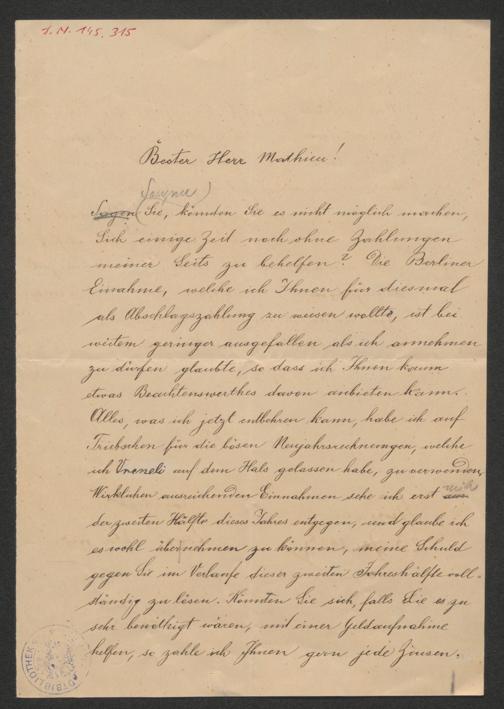 I.N. 145.315
Bester Herr Mathieu!
Sagen Sie, könnten Sie es nicht möglich machen,
Sich einige Zeit noch ohne Zahlungen
meiner Seits zu behelfen? Die Berliner
Einahme, welche ich Ihnen für diesmal
als Abschlagszahlung zu weisen wollte, ist bei
weitem geringer ausgefallen als ich annehmen
zu dürfen glaubte, so dass ich Ihnen kaum
etwas Beachtenswerthes davon anbieten kann.
Alles, was ich jetzt entbehren kann, habe ich auf
Triebschen für die bösen Neujahrsrechnungen, welche
ich Vreneli auf dem Hals gelassen habe, zu verwenden.
Wirklichen ausreichenden Einnahmen sehe ich erst mit
der zweiten Hälfte dieses Jahres entgegen, und glaube ich
es wohl übernehmen zu können, meine Schuld
gegen Sie im Verlaufe dieser zweiten Jahreshälfte voll-
ständig zu lösen. Könnten Sie sich, falls Sie es zu
sehr benöthigt wären, mit einer Geldaufnahme
helfen, so zahle ich Ihnen gern jede Zinsen.